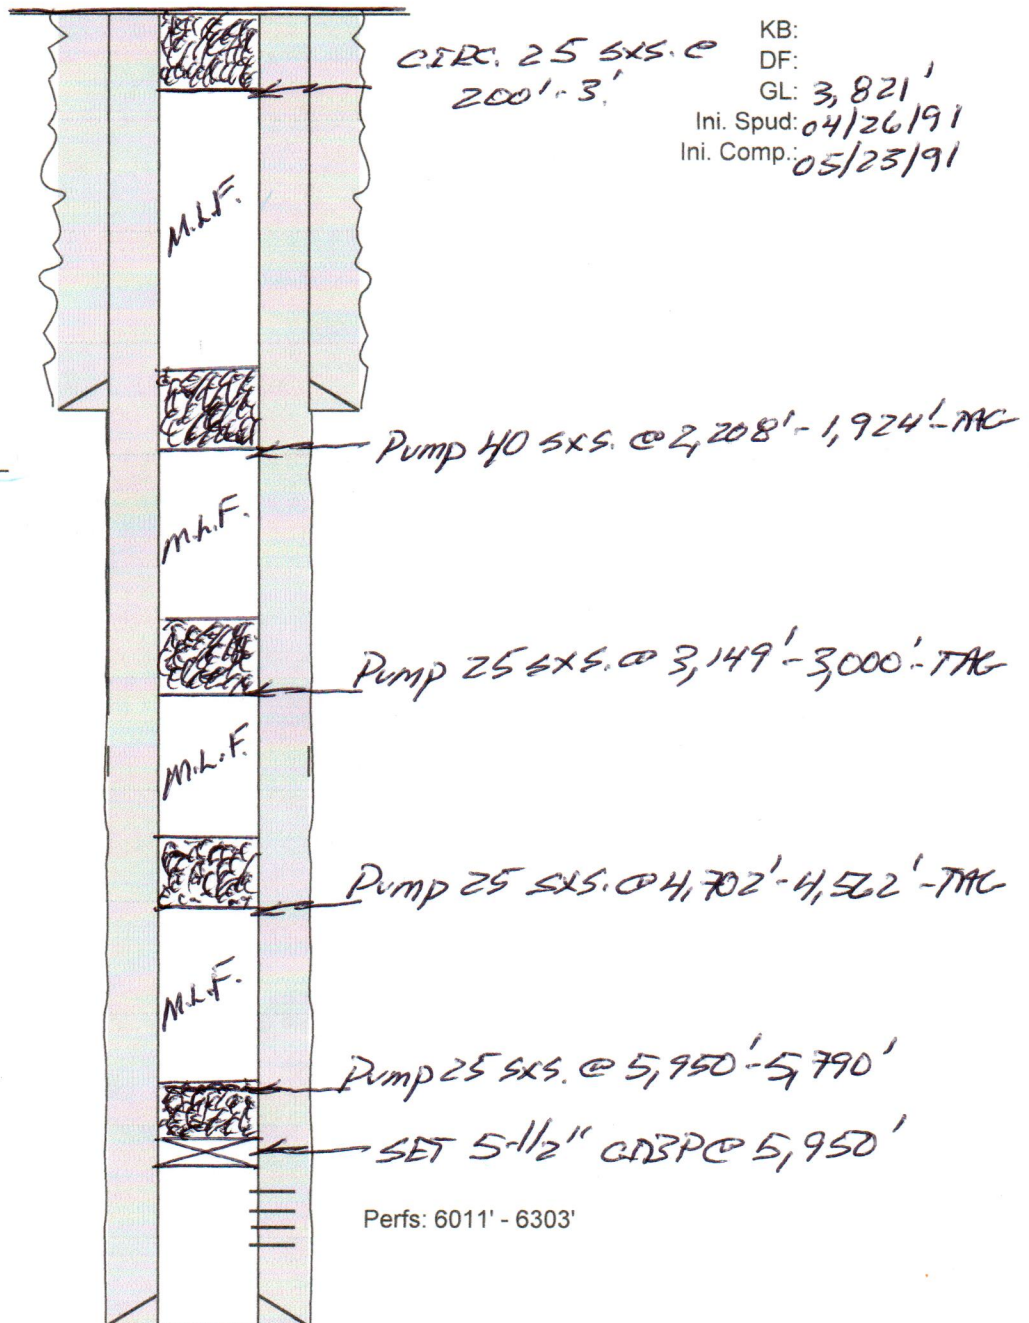 KB:
DF:
GL: 3,821'
Ini. Spud: 04/26/91
Ini. Comp.: 05/23/91
CIRC. 25 SXS. @
200'-3'
M.L.F.
Pump 40 SXS. @ 2,208'-1,924'-TAG
M.L.F.
Pump 25 SXS. @ 3,149'-3,000'-TAG
M.L.F.
Pump 25 SXS. @ 4,702'-4,562'-TAG
M.L.F.
Pump 25 SXS. @ 5,950'-5,790'
SET 5-1/2" CIBP @ 5,950'
Perfs: 6011' - 6303'